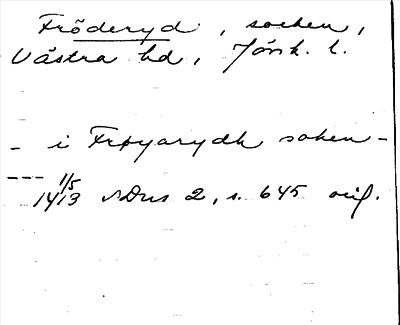 Fröderyd, socken,
Västra hd, Jönk. l.
- i Frøyarydh soken -
--- 1/5
1413 SDns 2, s. 645 orig.